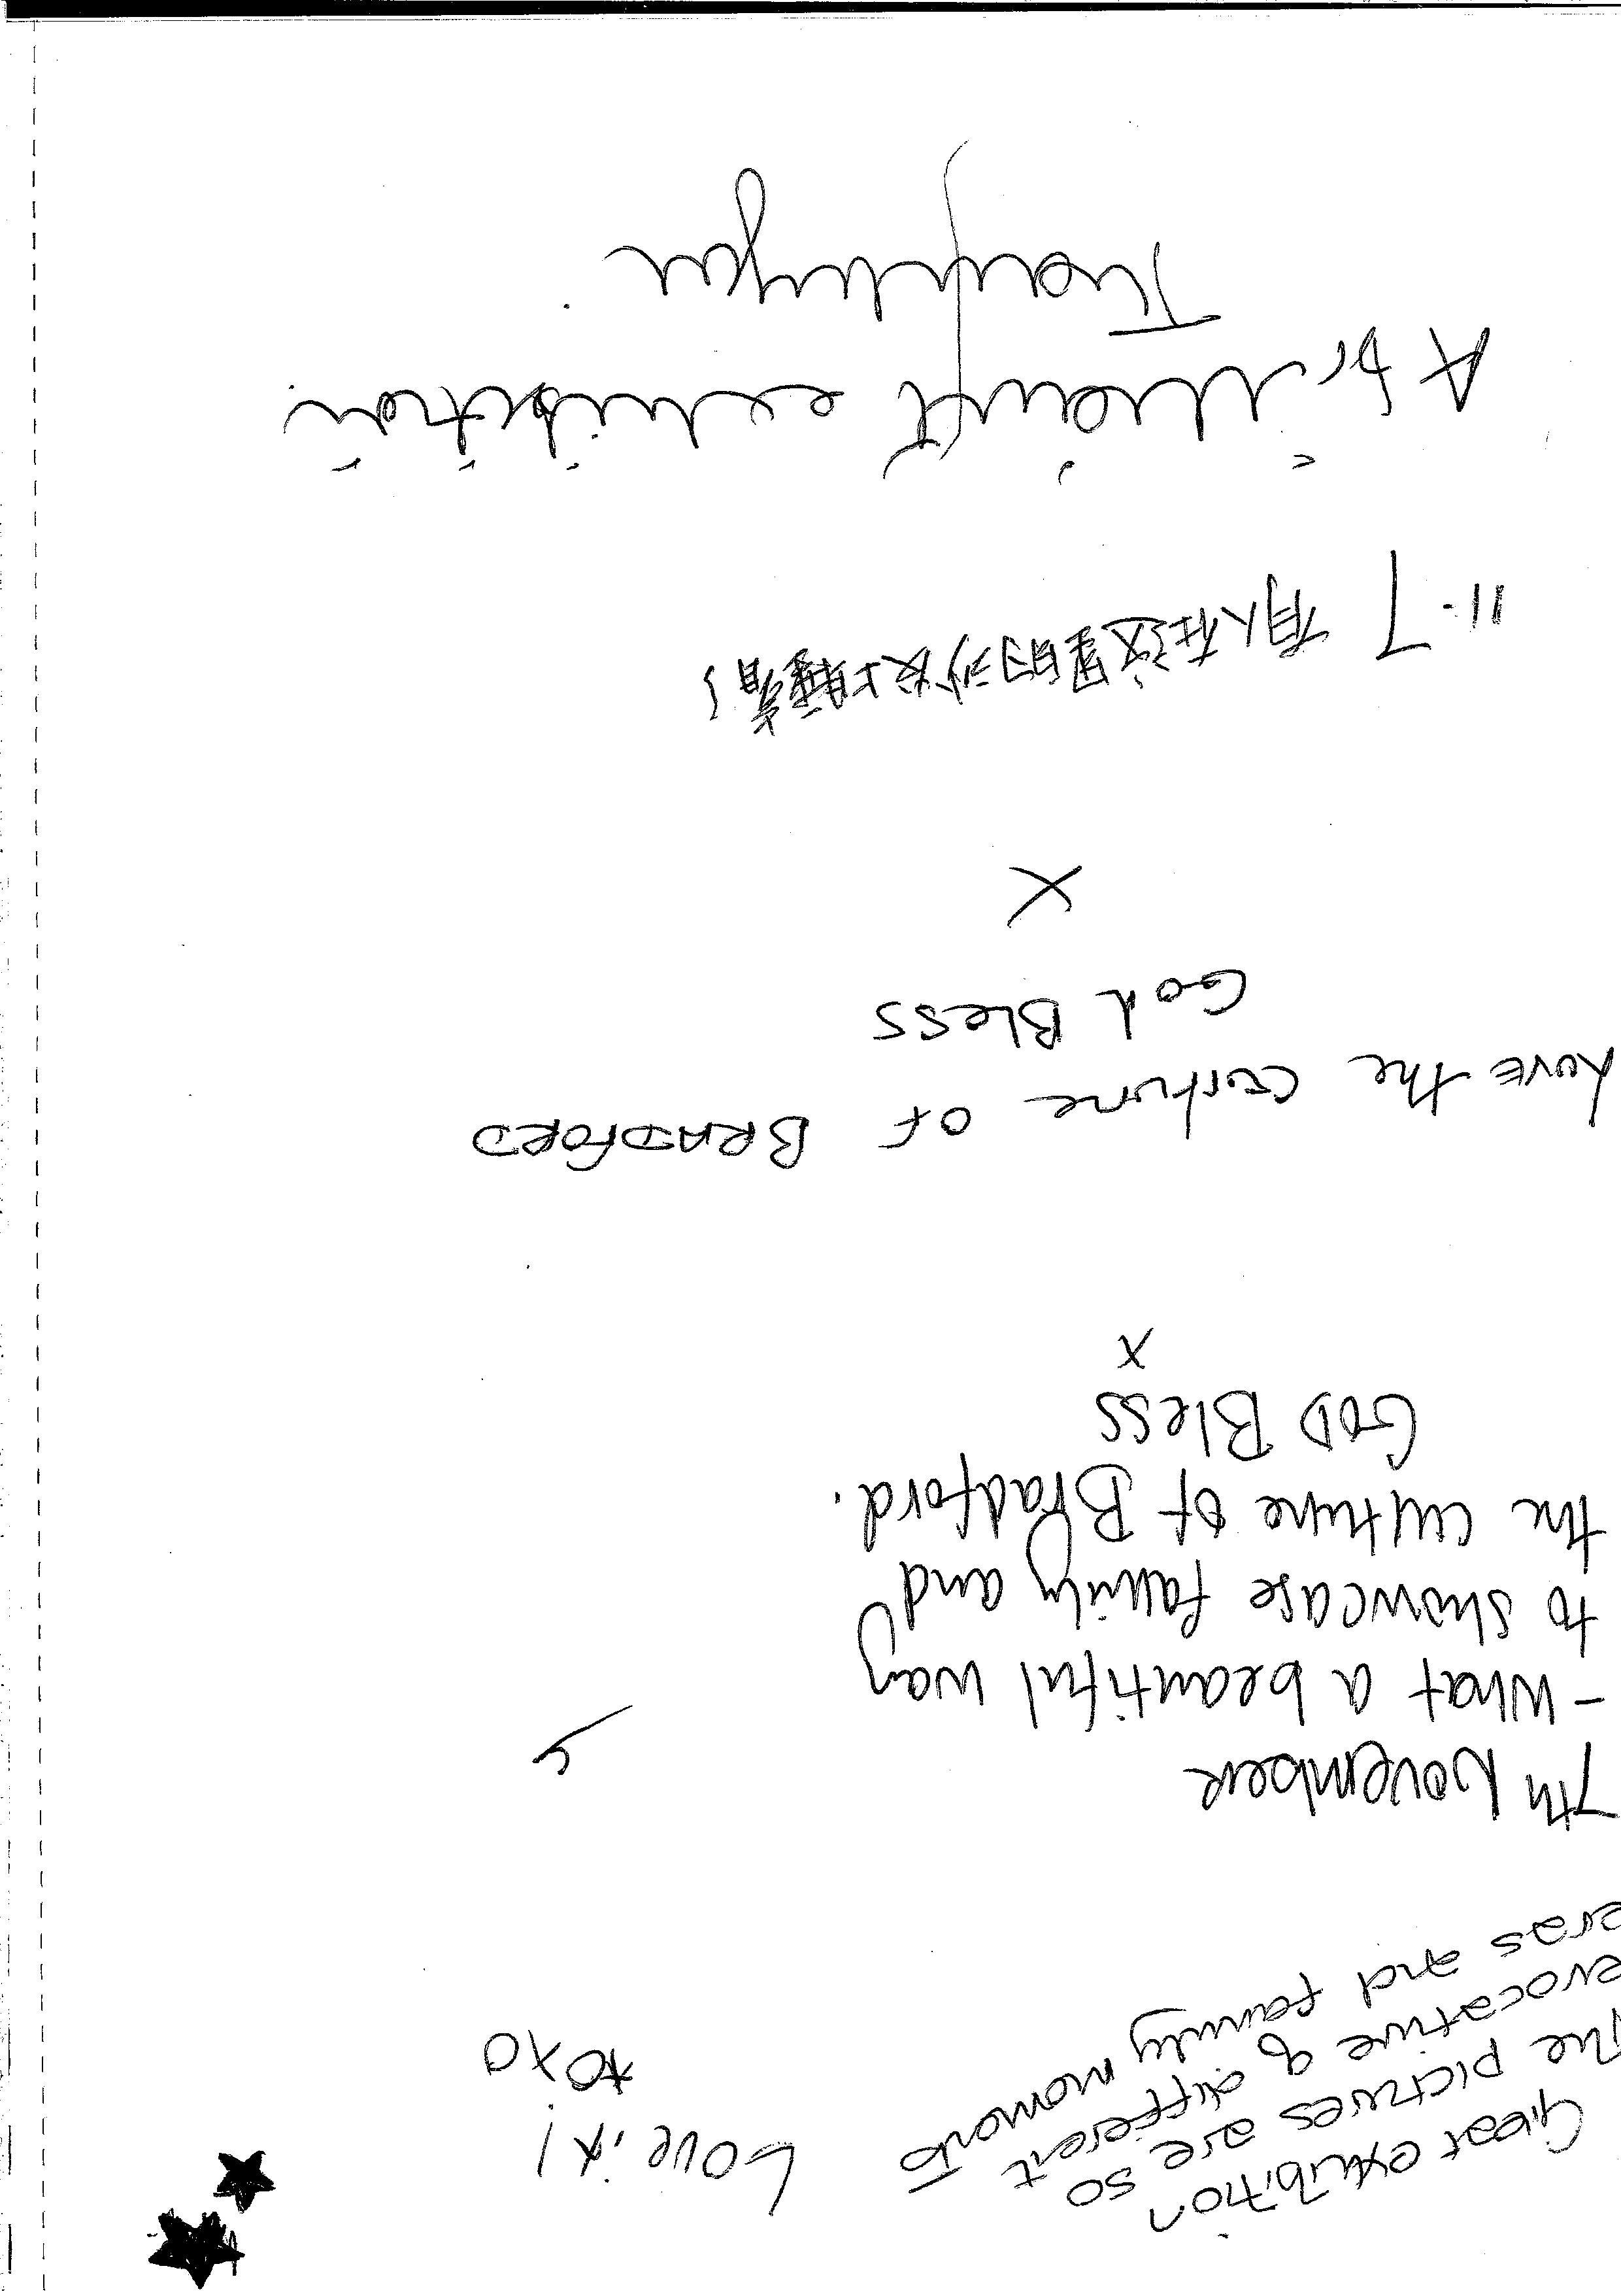 Great exhibition
The pictures are so
evocative of different
eras and family moments
Love it!
xoxo
7th November
- What a beautiful way
to showcase family and
the culture of Bradford.
GOD Bless
x
Love the culture of BRADFORD
God Bless
X
11.7 有人在这里的沙发上睡着了
A Brilliant exhibition